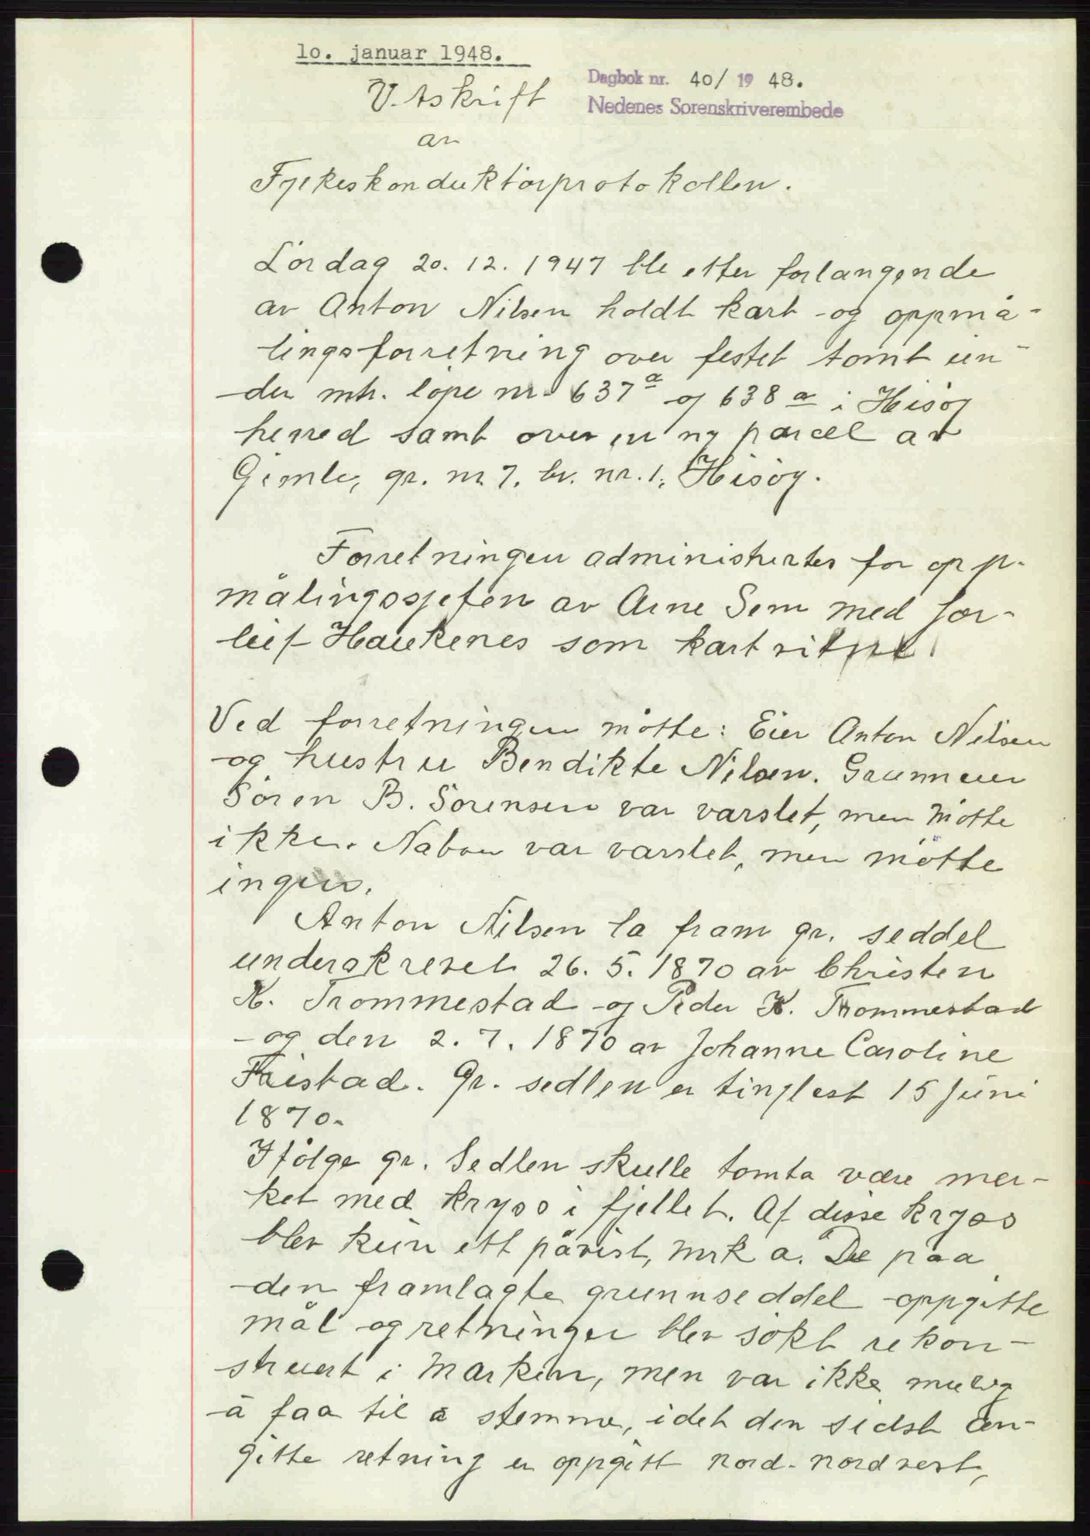 10. januar 1948.
Dagbok nr. 40/ 19 48.
Nedenes Sorenskriverembede
Utskrift
av
Fylkeskonduktørprotokollen.
Lördag 20. 12. 1947 ble etter forlangende
av Anton Nilsen holdt kart- og oppmå-
lingsforretning over festet tomt un-
der mtr. löpe nr. 637a og 638a i Hisöy
herred samt over en ny parcel av
Gimle, gr. nr. 7. br. nr. 1, Hisöy.
Forretningen administrertes for opp-
målingssjefen av Arne Sem med Tor-
leif Haukenes som kartvitne.
Ved forretningen mötte: Eier Anton Nilsen
og hustru Bendikte Nilsen. Grunneier
Sören B. Sörensen var varslet, men mötte
ikke. Naboer var varslet, men mötte
ingen.
Anton Nilsen la fram gr. seddel
underskrevet 26. 5. 1870 av Christen
K. Trommestad og Peder K. Trommestad
og den 2. 7. 1870 av Johanne Caroline
Fristad. Gr. sedlen er tinglest 15 juni
1870.
Ifölge gr. sedlen skulle tomta være mer-
ket med kryss i fjellet. Af disse kryss
blev kun ett påvist, mrk a. De paa
den framlagte grunnseddel oppgitte
mål og retninger blev sökt rekon-
struert i marken, men var ikke mulig
å faa til å stemme, idet den sidst an-
gitte retning er oppgitt nord-nordvest,